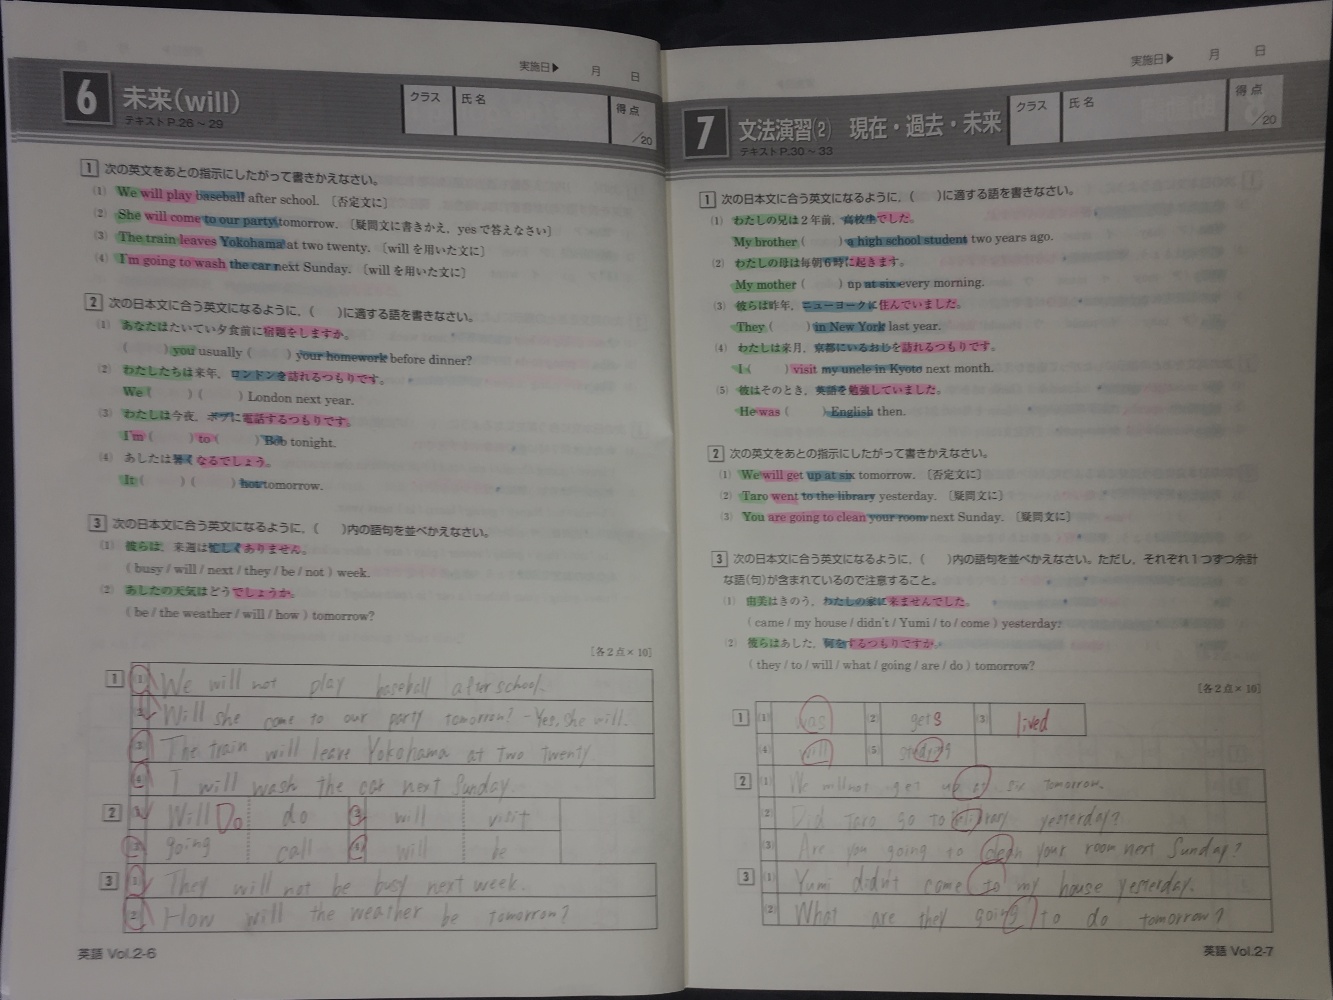 実施日▶ 月 日
6 未来(will)
テキストP.26～29
クラス 氏名 得点 /20
1 次の英文をあとの指示にしたがって書きかえなさい。
(1) We will play baseball after school. 〔否定文に〕
(2) She will come to our party tomorrow. 〔疑問文に書きかえ, yesで答えなさい〕
(3) The train leaves Yokohama at two twenty. 〔willを用いた文に〕
(4) I'm going to wash the car next Sunday. 〔willを用いた文に〕
2 次の日本文に合う英文になるように, ( )に適する語を書きなさい。
(1) あなたはたいてい夕食前に宿題をしますか。
( ) you usually ( ) your homework before dinner?
(2) わたしたちは来年, ロンドンを訪れるつもりです。
We ( ) ( ) London next year.
(3) わたしは今夜, ボブに電話するつもりです。
I'm ( ) to ( ) Bob tonight.
(4) あしたは暑くなるでしょう。
It ( ) ( ) hot tomorrow.
3 次の日本文に合う英文になるように, ( )内の語句を並べかえなさい。
(1) 彼らは, 来週は忙しくありません。
( busy / will / next / they / be / not ) week.
(2) あしたの天気はどうでしょうか。
( be / the weather / will / how ) tomorrow?
[各2点×10]
1 (1) We will not play baseball after school.
(2) Will she come to our party tomorrow? - Yes, she will.
(3) The train will leave Yokohama at two twenty.
(4) I will wash the car next Sunday.
2 (1) Will Do do (2) will visit
(3) going call (4) will be
3 (1) They will not be busy next week.
(2) How will the weather be tomorrow?
英語 Vol.2-6
実施日▶ 月 日
7 文法演習(2) 現在・過去・未来
テキストP.30～33
クラス 氏名 得点 /20
1 次の日本文に合う英文になるように, ( )に適する語を書きなさい。
(1) わたしの兄は2年前, 高校生でした。
My brother ( ) a high school student two years ago.
(2) わたしの母は毎朝6時に起きます。
My mother ( ) up at six every morning.
(3) 彼らは昨年, ニューヨークに住んでいました。
They ( ) in New York last year.
(4) わたしは来月, 京都にいるおじを訪れるつもりです。
I ( ) visit my uncle in Kyoto next month.
(5) 彼はそのとき, 英語を勉強していました。
He was ( ) English then.
2 次の英文をあとの指示にしたがって書きかえなさい。
(1) We will get up at six tomorrow. 〔否定文に〕
(2) Taro went to the library yesterday. 〔疑問文に〕
(3) You are going to clean your room next Sunday. 〔疑問文に〕
3 次の日本文に合う英文になるように, ( )内の語句を並べかえなさい。ただし, それぞれ1つずつ余計
な語(句)が含まれているので注意すること。
(1) 由美はきのう, わたしの家に来ませんでした。
( came / my house / didn't / Yumi / to / come ) yesterday.
(2) 彼らはあした, 何をするつもりですか。
( they / to / will / what / going / are / do ) tomorrow?
[各2点×10]
1 (1) was (2) gets (3) lived
(4) will (5)
2 (1) We will not get up at six tomorrow.
(2) Did Taro go to yesterday?
(3) Are you going to clean your room next Sunday?
3 (1) Yumi didn't come to my house yesterday.
(2) What are they going to do tomorrow?
英語 Vol.2-7